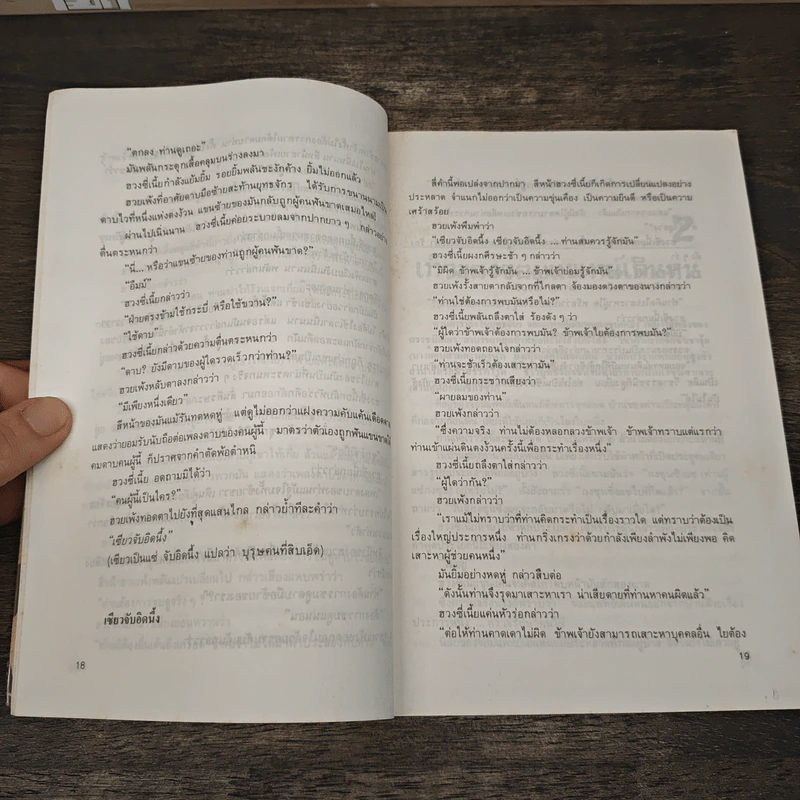 "ตกลง ท่านดูเถอะ"
มันพลันกระตุกเสื้อคลุมบนร่างลงมา
ฮวงซี่เนี้ยกำลังแย้มยิ้ม รอยยิ้มพลันชะงักค้าง ยิ้มไม่ออกแล้ว
ฮวยเพ้งที่อาศัยดาบมือซ้ายสะท้านยุทธจักร ได้รับการขนานนามเป็น
ดาบไวที่หนึ่งแห่งตงง้วน แขนซ้ายของมันกลับถูกผู้คนฟันขาดเสมอไหล่
ผ่านไปเนิ่นนาน ฮวงซี่เนี้ยค่อยระบายลมจากปากยาว ๆ กล่าวอย่าง
ตื่นตระหนกว่า
"นี่... หรือว่าแขนซ้ายของท่านถูกผู้คนฟันขาด?"
"อืมม์"
ฮวงซี่เนี้ยกล่าวว่า
"ฝ่ายตรงข้ามใช้กระบี่ หรือใช้ขวาน?"
"ใช้ดาบ"
ฮวงซี่เนี้ยกล่าวด้วยความตื่นตระหนกว่า
"ดาบ? ยังมีดาบของผู้ใดรวดเร็วกว่าท่าน?"
ฮวยเพ้งหลับตาลงกล่าวว่า
"มีเพียงหนึ่งเดียว"
สีหน้าของมันแม้รันทดหดหู่ แต่ดูไม่ออกว่าแฝงความคับแค้นเดือดดาล
แสดงว่ายอมรับนับถือต่อเพลงดาบของคนผู้นี้ มาตรว่าตัวเองถูกฟันแขนขาดใต้
คมดาบคนผู้นี้ ก็ปราศจากคำตัดพ้อตำหนิ
ฮวงซี่เนี้ย อดถามมิได้ว่า
"คนผู้นี้เป็นใคร?"
ฮวยเพ้งทอดตาไปยังที่สุดแสนไกล กล่าวย้ำทีละคำว่า
"เซียวจับอิดนึ้ง"
(เซียวเป็นแซ่ จับอิดนึ้ง แปลว่า บุรุษคนที่สิบเอ็ด)
เซียวจับอิดนึ้ง
18
สี่คำนี้พอเปล่งจากปากมา สีหน้าฮวงซี่เนี้ยก็เกิดการเปลี่ยนแปลงอย่าง
ประหลาด จำแนกไม่ออกว่าเป็นความขุ่นเคือง เป็นความยินดี หรือเป็นความ
เศร้าสร้อย
ฮวยเพ้งพึมพำว่า
"เซียวจับอิดนึ้ง เซียวจับอิดนึ้ง ... ท่านสมควรรู้จักมัน"
ฮวงซี่เนี้ยผงกศีรษะช้า ๆ กล่าวว่า
"มิผิด ข้าพเจ้ารู้จักมัน ... ข้าพเจ้าย่อมรู้จักมัน"
ฮวยเพ้งรั้งสายตากลับจากที่ไกลตา จ้องมองดวงตาของนางกล่าวว่า
"ท่านใช่ต้องการพบมันหรือไม่?"
ฮวงซี่เนี้ยพลันถลึงตาใส่ ร้องดัง ๆ ว่า
"ผู้ใดว่าข้าพเจ้าต้องการพบมัน? ข้าพเจ้าไยต้องการพบมัน?"
ฮวยเพ้งทอดถอนใจกล่าวว่า
"ท่านจะช้าเร็วต้องเสาะหามัน"
ฮวงซี่เนี้ยกระชากเสียงว่า
"ผายลมของท่าน"
ฮวยเพ้งกล่าวว่า
"ซึ่งความจริง ท่านไม่ต้องหลอกลวงข้าพเจ้า ข้าพเจ้าทราบแต่แรกว่า
ท่านเข้าแผ่นดินตงง้วนครั้งนี้เพื่อกระทำเรื่องหนึ่ง"
ฮวงซี่เนี้ยถลึงตาใส่กล่าวว่า
"ผู้ใดว่ากัน?"
ฮวยเพ้งกล่าวว่า
"เราแม้ไม่ทราบว่าที่ท่านคิดกระทำเป็นเรื่องราวใด แต่ทราบว่าต้องเป็น
เรื่องใหญ่ประการหนึ่ง ท่านกริ่งเกรงว่าด้วยกำลังเพียงลำพังไม่เพียงพอ คิด
เสาะหาผู้ช่วยคนหนึ่ง"
มันยิ้มอย่างหดหู่ กล่าวสืบต่อ
"ดังนั้นท่านจึงรุดมาเสาะหาเรา น่าเสียดายที่ท่านหาคนผิดแล้ว"
ฮวงซี่เนี้ยแค่นหัวร่อกล่าวว่า
"ต่อให้ท่านคาดเดาไม่ผิด ข้าพเจ้ายังสามารถเสาะหาบุคคลอื่น ไยต้อง
19